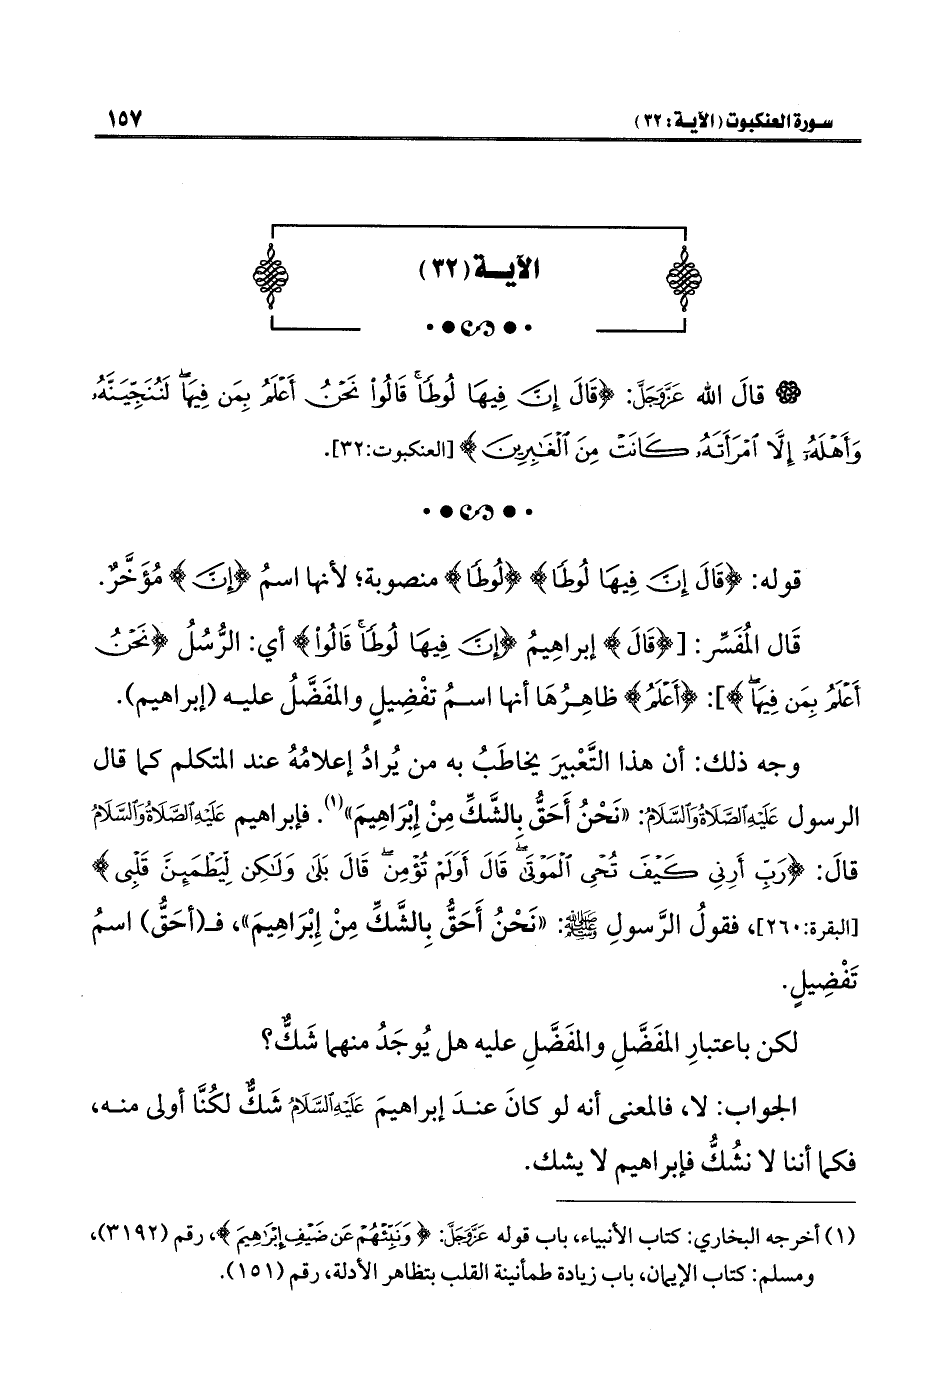 سورة العنكبوت (الآية: ٣٢)
١٥٧
الآيـة (٣٢)
قالَ الله عَزَّوَجَلَّ: ﴿قَالَ إِنَّ فِيهَا لُوطًا ۚ قَالُوا۟ نَحْنُ أَعْلَمُ بِمَن فِيهَا ۖ لَنُنَجِّيَنَّهُۥ
وَأَهْلَهُۥٓ إِلَّا ٱمْرَأَتَهُۥ كَانَتْ مِنَ ٱلْغَـٰبِرِينَ﴾ [العنكبوت:٣٢].
قوله: ﴿قَالَ إِنَّ فِيهَا لُوطًا﴾ ﴿لُوطًا﴾ منصوبة؛ لأنها اسمُ ﴿إِنَّ﴾ مُؤَخَّرٌ.
قَال المُفَسِّر: [﴿قَالَ﴾ إبراهيمُ ﴿إِنَّ فِيهَا لُوطًا ۚ قَالُوا۟﴾ أي: الرُّسُلُ ﴿نَحْنُ
أَعْلَمُ بِمَن فِيهَا ۖ﴾]: ﴿أَعْلَمُ﴾ ظاهِرُهَا أنها اسـمُ تفْضِيلٍ والمفَضَّلُ عليـه (إبراهيم).
وجه ذلك: أن هذا التَّعْبِيرَ يخاطَبُ به من يُرادُ إعلامُهُ عند المتكلم كما قال
الرسول عَلَيْهِ الصَّلَاةُ وَالسَّلَامُ: «نَحْنُ أَحَقُّ بِالشَّكِّ مِنْ إِبْرَاهِيمَ»(١). فإبراهيم عَلَيْهِ الصَّلَاةُ وَالسَّلَامُ
قالَ: ﴿رَبِّ أَرِنِى كَيْفَ تُحْىِ ٱلْمَوْتَىٰ ۖ قَالَ أَوَلَمْ تُؤْمِن ۖ قَالَ بَلَىٰ وَلَـٰكِن لِّيَطْمَئِنَّ قَلْبِى﴾
[البقرة:٢٦٠]، فقولُ الرَّسولِ ﷺ: «نَحْنُ أَحَقُّ بِالشَّكِّ مِنْ إِبْرَاهِيمَ»، فـ(أحَقُّ) اسمُ
تَفْضِيلٍ.
لكن باعتبارِ المفَضَّلِ والمفَضَّلِ عليه هل يُوجَدُ منهما شَكٌّ؟
الجواب: لا، فالمعنى أنه لو كانَ عنـدَ إبراهيمَ عَلَيْهِ السَّلَامُ شَكٌّ لكُنَّا أولى منـه،
فكما أننا لا نشُكُّ فإبراهيم لا يشك.
(١) أخرجه البخاري: كتاب الأنبياء، باب قوله عَزَّوَجَلَّ: ﴿وَنَبِّئْهُمْ عَن ضَيْفِ إِبْرَٰهِيمَ﴾، رقم (٣١٩٢)،
ومسلم: كتاب الإيمان، باب زيادة طمأنينة القلب بتظاهر الأدلة، رقم (١٥١).